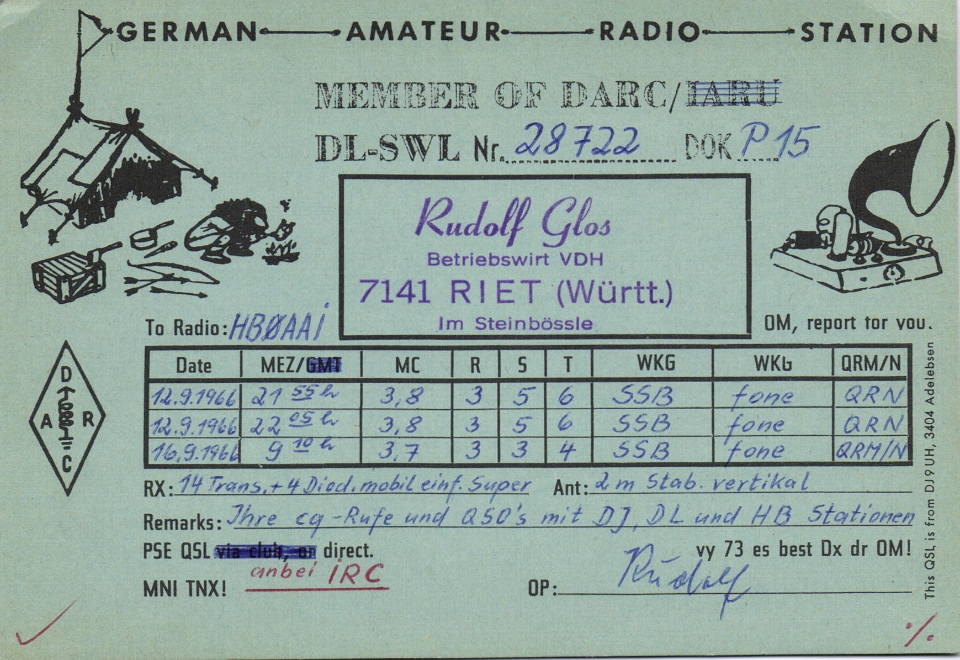 GERMAN AMATEUR RADIO STATION
MEMBER OF DARC/IARU
DL-SWL Nr. 28722 DOK P 15
Rudolf Glos
Betriebswirt VDH
7141 RIET (Württ.)
Im Steinbössle
To Radio: HBØAAi OM, report for you.
Date MEZ/GMT MC R S T WKG WKG QRM/N
12.9.1966 21 55 h 3,8 3 5 6 SSB fone QRN
12.9.1966 22 05 h 3,8 3 5 6 SSB fone QRN
16.9.1966 9 10 h 3,7 3 3 4 SSB fone QRM/N
D
A R
C
RX: 14 Trans. + 4 Diod. mobil einf. Super Ant: 2 m Stab. vertikal
Remarks: Ihre cq-Rufe und QSO's mit DJ, DL und HB Stationen
PSE QSL via club, or direct. vy 73 es best Dx dr OM!
anbei iRC
MNI TNX! OP: Rudolf
This QSL is from DJ9UH, 3404 Adelebsen
%